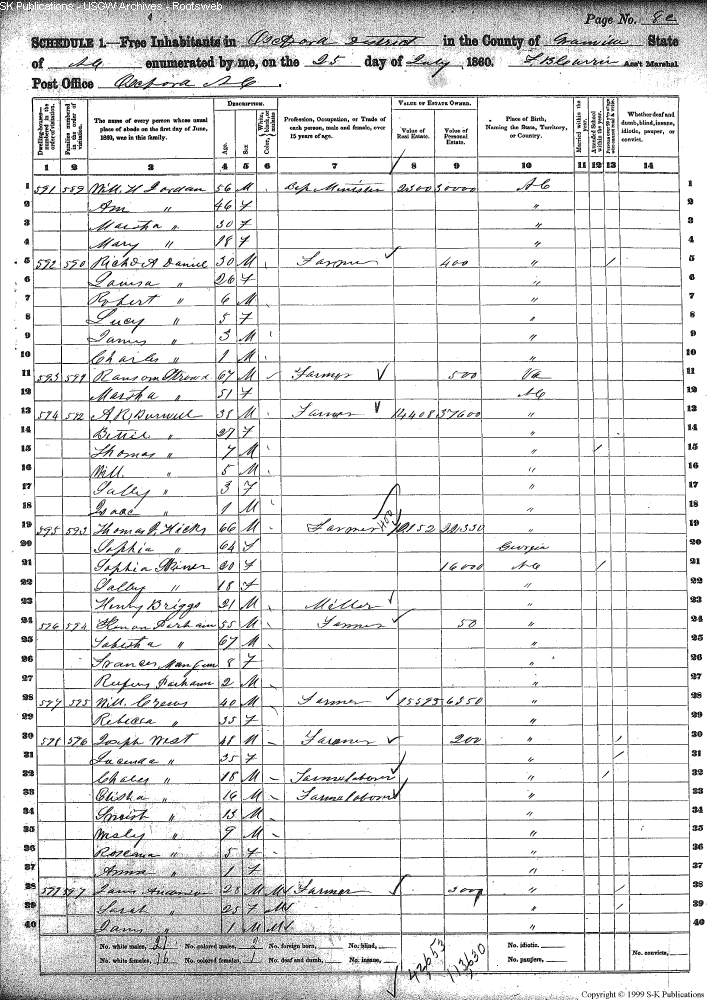 SK Publications - USGW Archives - Rootsweb
Page No. 80
SCHEDULE 1.—Free Inhabitants in Oxford District in the County of Granville State
of NC enumerated by me, on the 25 day of July 1860. Ass't Marshal
Post Office Oxford N C.
DESCRIPTION. VALUE OF ESTATE OWNED.
Dwelling-houses—numbered in the order of visitation.
Families numbered in the order of visitation.
The name of every person whose usual place of abode on the first day of June, 1860, was in this family.
Age.
Sex
Color, White, black, or mulatto
Profession, Occupation, or Trade of each person, male and female, over 15 years of age.
Value of Real Estate.
Value of Personal Estate.
Place of Birth, Naming the State, Territory, or Country.
Married within the year.
Attended School within the year.
Whether deaf and dumb, blind, insane, idiotic, pauper, or convict.
1 2 3 4 5 6 7 8 9 10 11 12 13 14
1 591 589 Will. H Jordan 56 M Bap Minister 2300 30000 NC 1
2 Ann " 46 F " 2
3 Martha " 30 F " 3
4 Mary " 18 F " 4
5 592 590 Richd A Daniel 30 M Farmer 400 " / 5
6 Louisa " 26 F " 6
7 Robert " 6 M " 7
8 Lucy " 5 F " 8
9 James " 3 M " 9
10 Charles " 1 M " 10
11 593 591 Ransom 67 M Farmer 500 Va 11
12 Martha " 51 F NC 12
13 594 592 A R Burwell 38 M Farmer 14408 37600 " 13
14 Bettie " 27 F " 14
15 Thomas " 7 M " / 15
16 Will. " 5 M " 16
17 Sally " 3 F " 17
18 Isaac " 1 M " 18
19 595 593 Thomas Hicks 66 M Farmer 22330 " 19
20 Sophia " 64 F Georgia 20
21 Sophia F 16000 NC / 21
22 Salley " 18 F " 22
23 Henry Briggs 21 M Miller " 23
24 596 594 Parham 55 M Farmer 50 " 24
25 Tabitha " 67 M " 25
26 Frances Mangum 8 F " 26
27 Rufus Parham 2 M " 27
28 597 595 Will. Crews 40 M Farmer 6350 " 28
29 Rebecca " 35 F " 29
30 598 596 Joseph West 48 M Farmer 200 " / 30
31 Lucinda " 35 F " / 31
32 Charles " 18 M Farm laborer " / 32
33 Elisha " 16 M Farm laborer " 33
34 " 13 M " 34
35 Wesly " 9 M " 35
36 Roseana " 5 F " 36
37 Anna " 1 F " 37
38 599 597 Anderson 28 M M Farmer 300 " / 38
39 Sarah " 25 F M " / 39
40 " 1 M M " 40
No. white males, 21 No. colored males, 2 No. foreign born, No. blind, No. idiotic. No. convicts,
No. white females, 16 No. colored females, 1 No. deaf and dumb, No. insane, No. paupers,
42653 113630
Copyright © 1999 S-K Publications